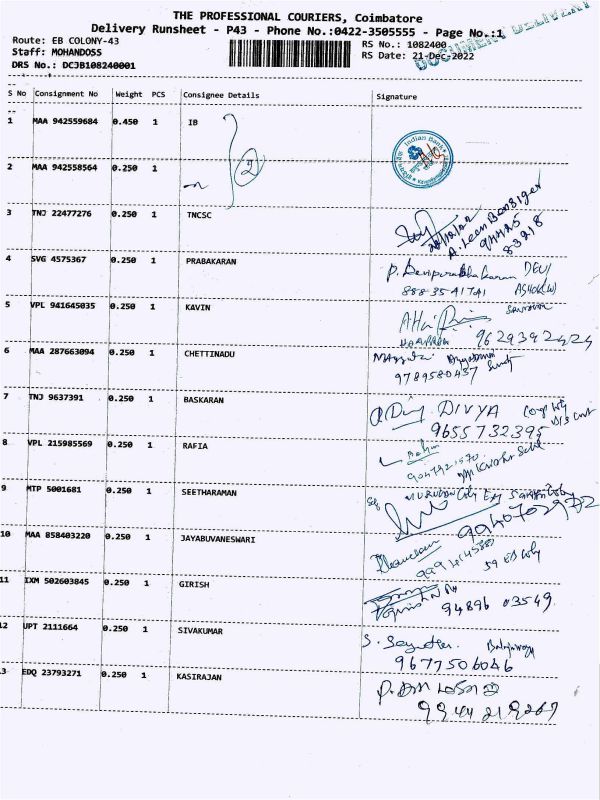 THE PROFESSIONAL COURIERS, Coimbatore
Delivery Runsheet - P43 - Phone No.:0422-3505555 - Page No.:1
DOCUMENT DELIVERY
Route: EB COLONY-43
Staff: MOHANDOSS
DRS No.: DCJB108240001
RS No.: 1082400
RS Date: 21-Dec-2022
S No Consignment No Weight PCS Consignee Details Signature
1 MAA 942559684 0.450 1 IB
Indian Bank
2 MAA 942558564 0.250 1
2
3 TNJ 22477276 0.250 1 TNCSC
A. Leen Benziger
94425
83218
4 SVG 4575367 0.250 1 PRABAKARAN
DEV/
8883541741
5 VPL 941645035 0.250 1 KAVIN
9629392424
6 MAA 287663094 0.250 1 CHETTINADU
9789580437
7 TNJ 9637391 0.250 1 BASKARAN
DIVYA
9655732395
8 VPL 215985569 0.250 1 RAFIA
9 MTP 5001681 0.250 1 SEETHARAMAN
9940702972
10 MAA 858403220 0.250 1 JAYABUVANESWARI
59 EB Coly
11 IXM 502603845 0.250 1 GIRISH
94896 03549
12 UPT 2111664 0.250 1 SIVAKUMAR
9677506046
3 EDQ 23793271 0.250 1 KASIRAJAN
9944219267